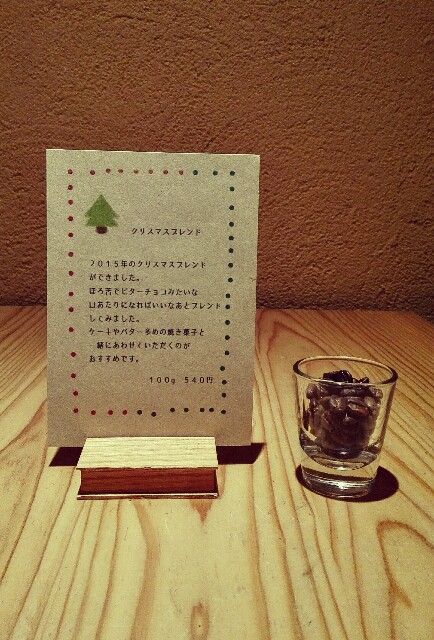 クリスマスブレンド
2015年のクリスマスブレンド
ができました。
ほろ苦でビターチョコみたいな
口あたりになればいいなあとブレンド
してみました。
ケーキやバター多めの焼き菓子と
一緒にあわせていただくのが
おすすめです。
100g 540円